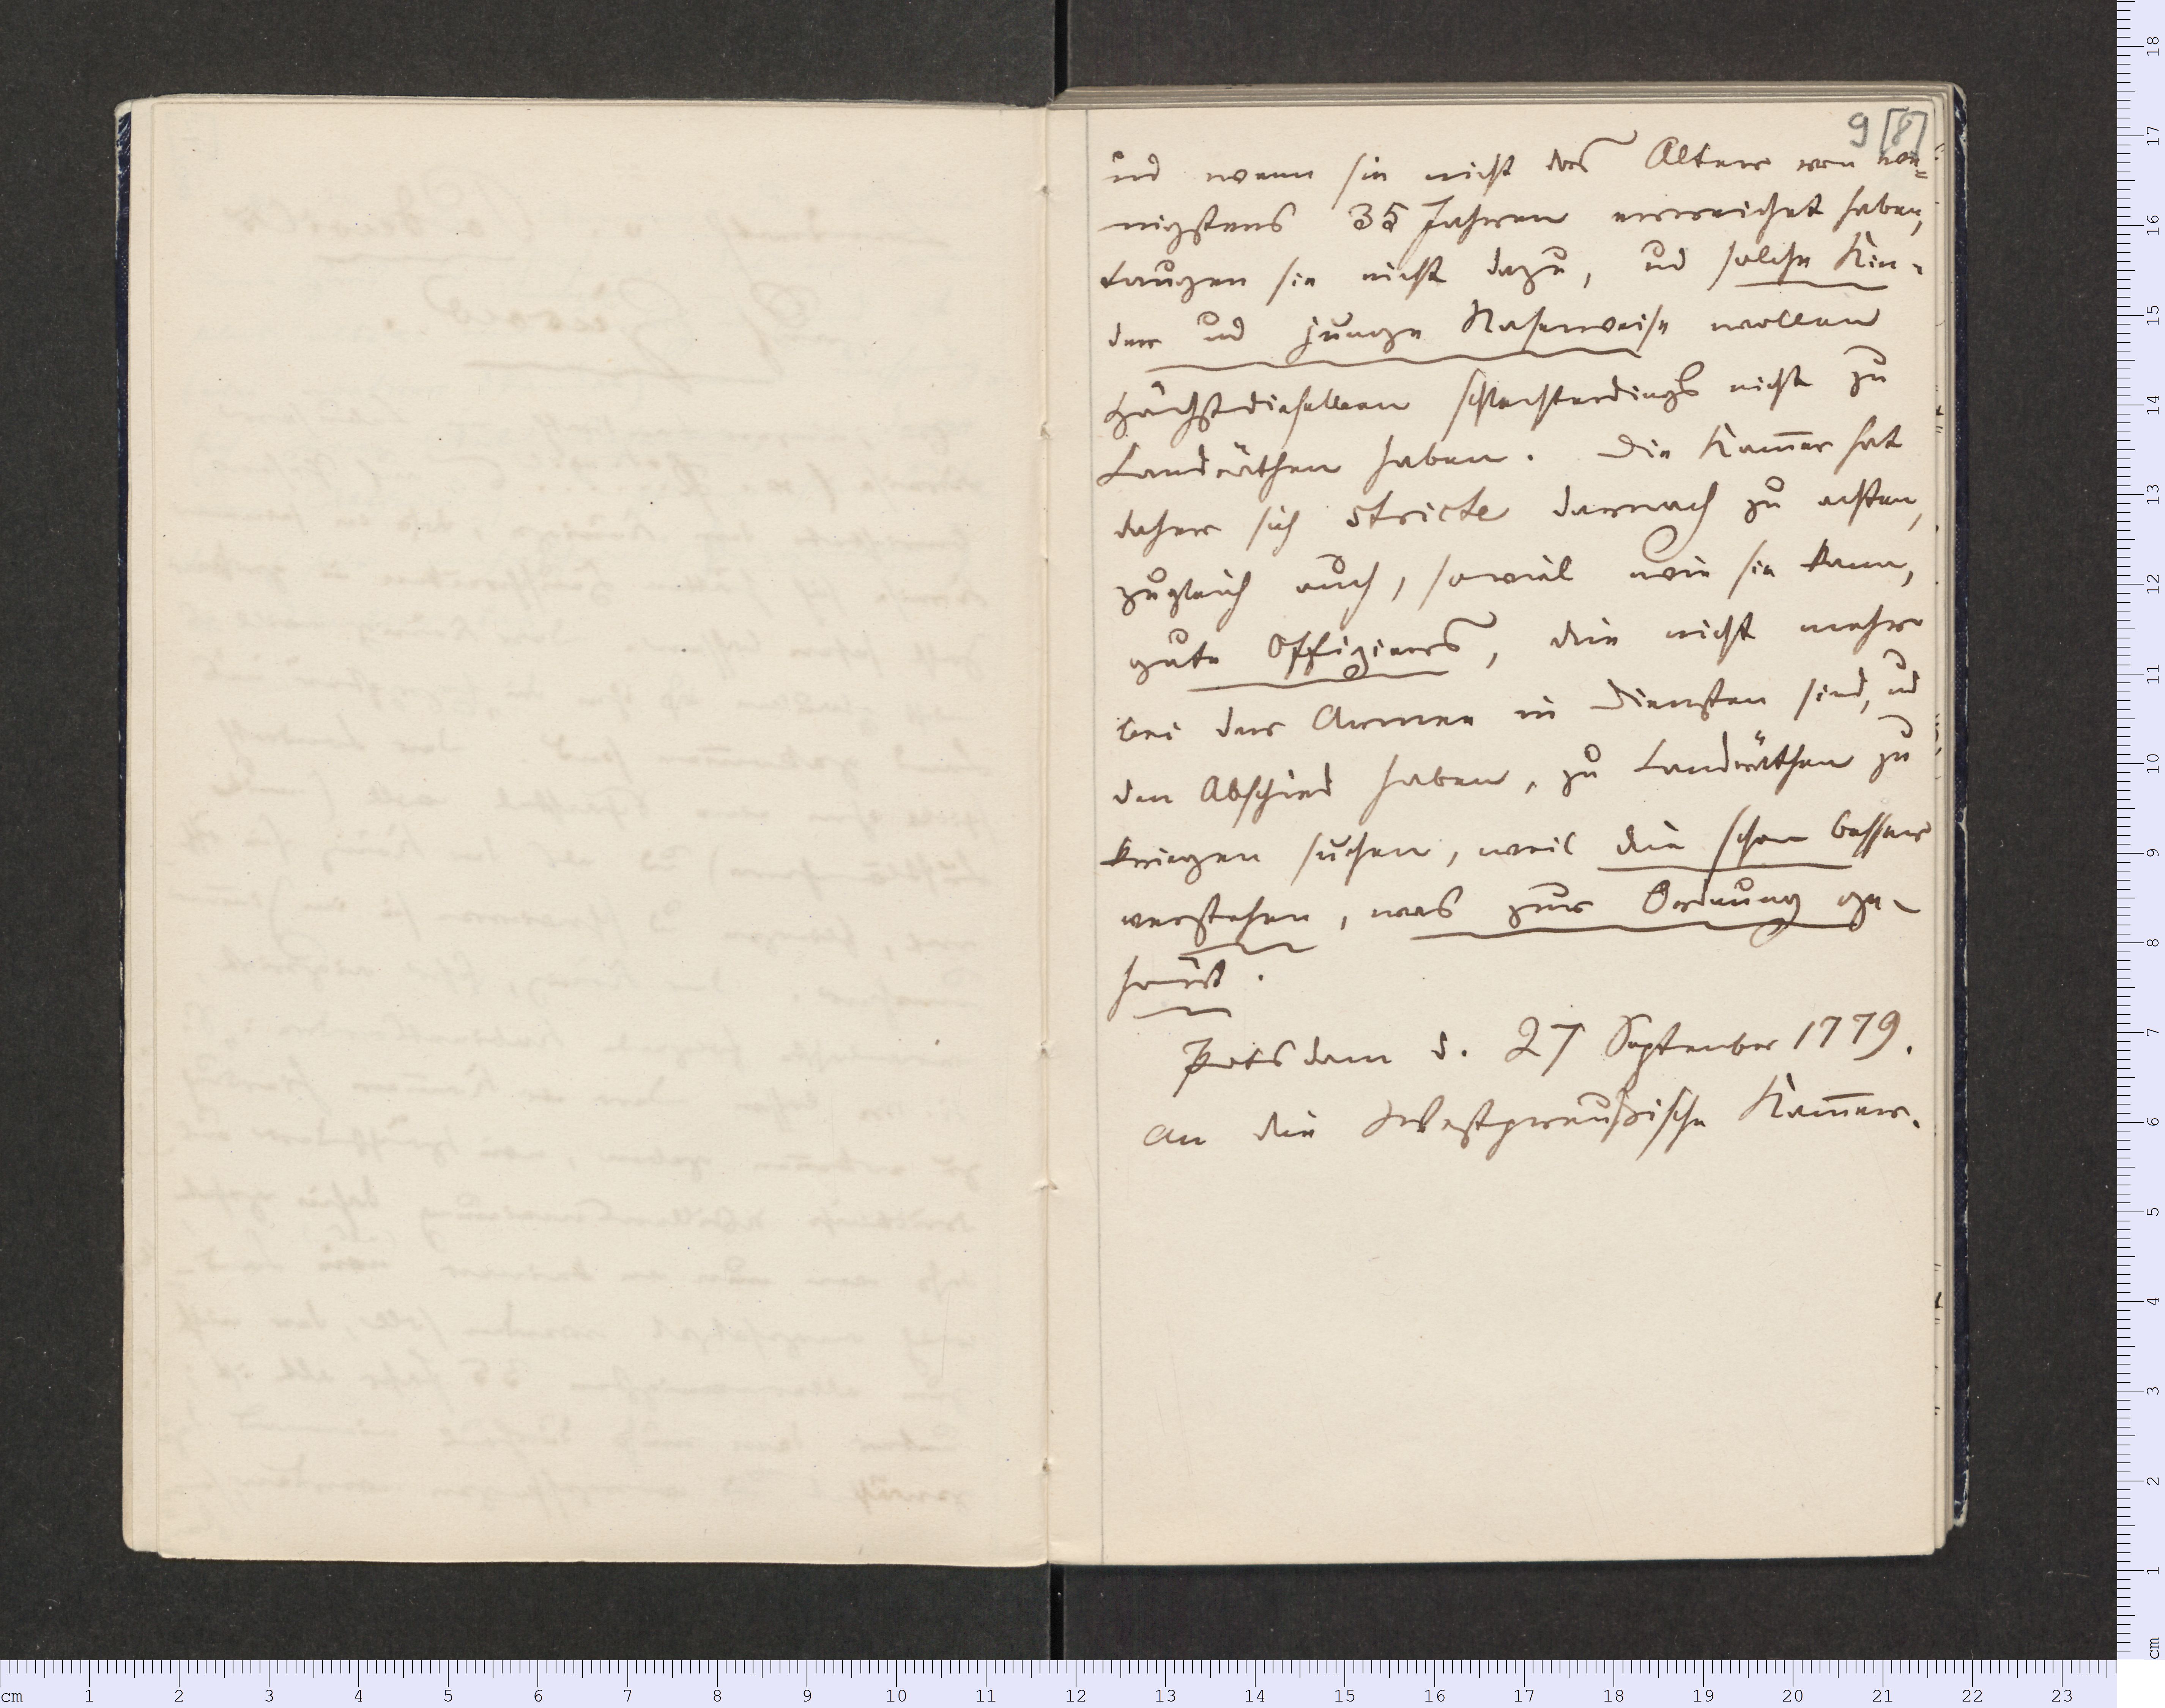 9 [8]
und wenn sie nicht das Alter von we=
nigstens 35 Jahren erreichet haben,
taugen sie nicht dazu, und solche Kin-
der und junge Naseweise wollen
Höchstdieselben schlechterdings nicht zu
Landräthen haben. Die Kam̅er hat
daher sich stricte darnach zu achten,
zugleich auch, soviel wie sie kann,
gute Offiziers, die nicht mehr
bei der Armee in Diensten sind, und
den Abschied haben, zu Landräthen zu
kriegen suchen, weil die schon besser
verstehen, was zur Ordnung ge-
hört.
Potsdam d. 27 September 1779.
An die Westpreußische Kam̅er.